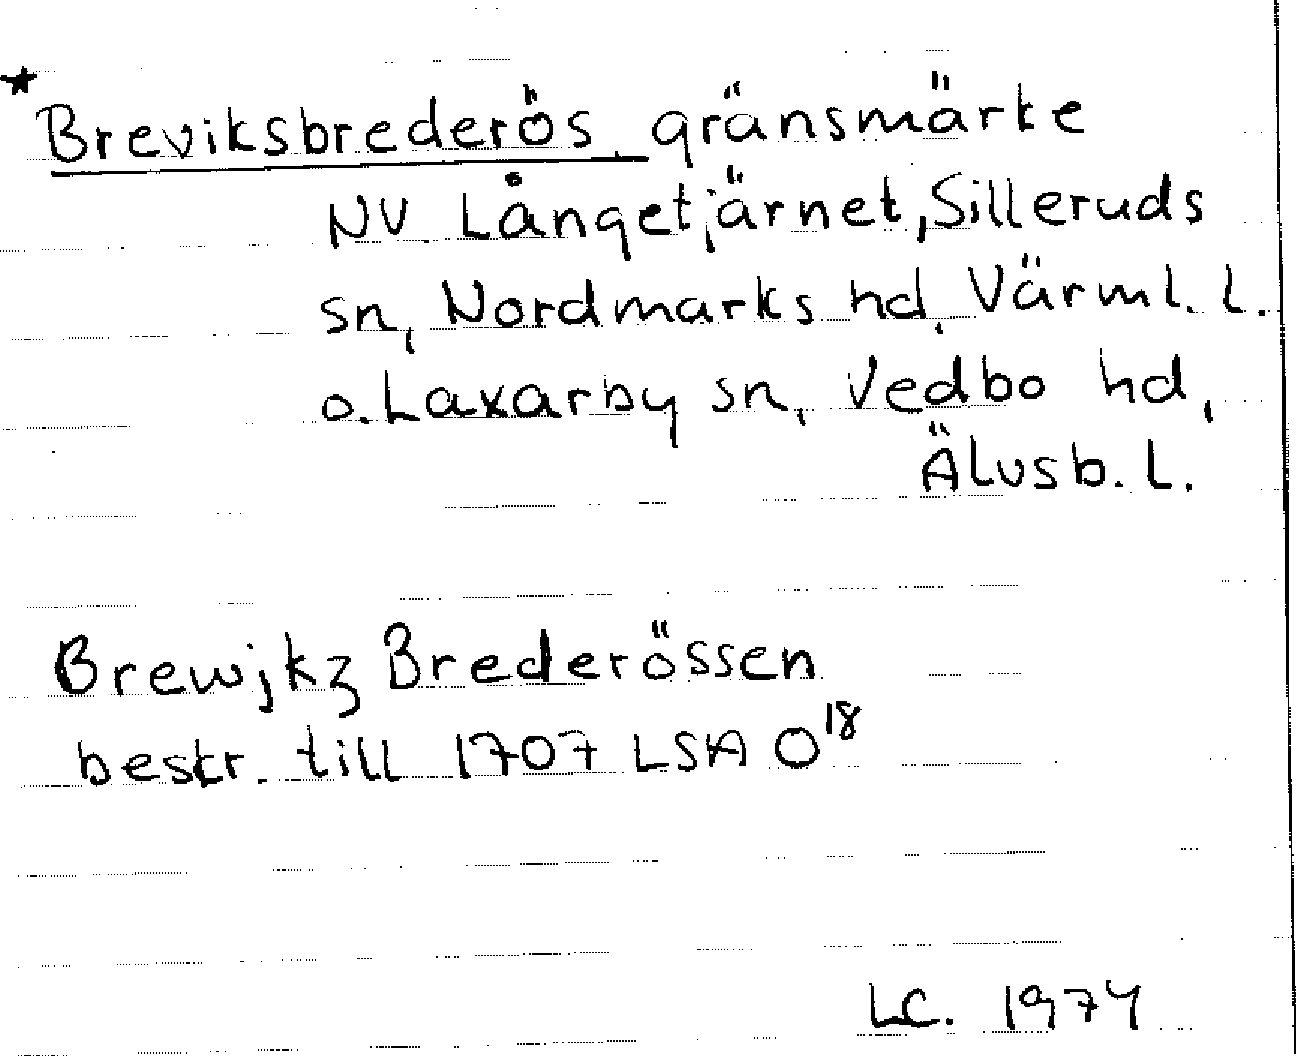 * Breviksbrederös, gränsmärke
NV Långetjärnet, Silleruds
sn, Nordmarks hd, Värml. l.
o. Laxarby sn, Vedbo hd,
Älvsb. l.
Brewjkz Brederössen
beskr. till 1707 LSA O18
LC. 1974